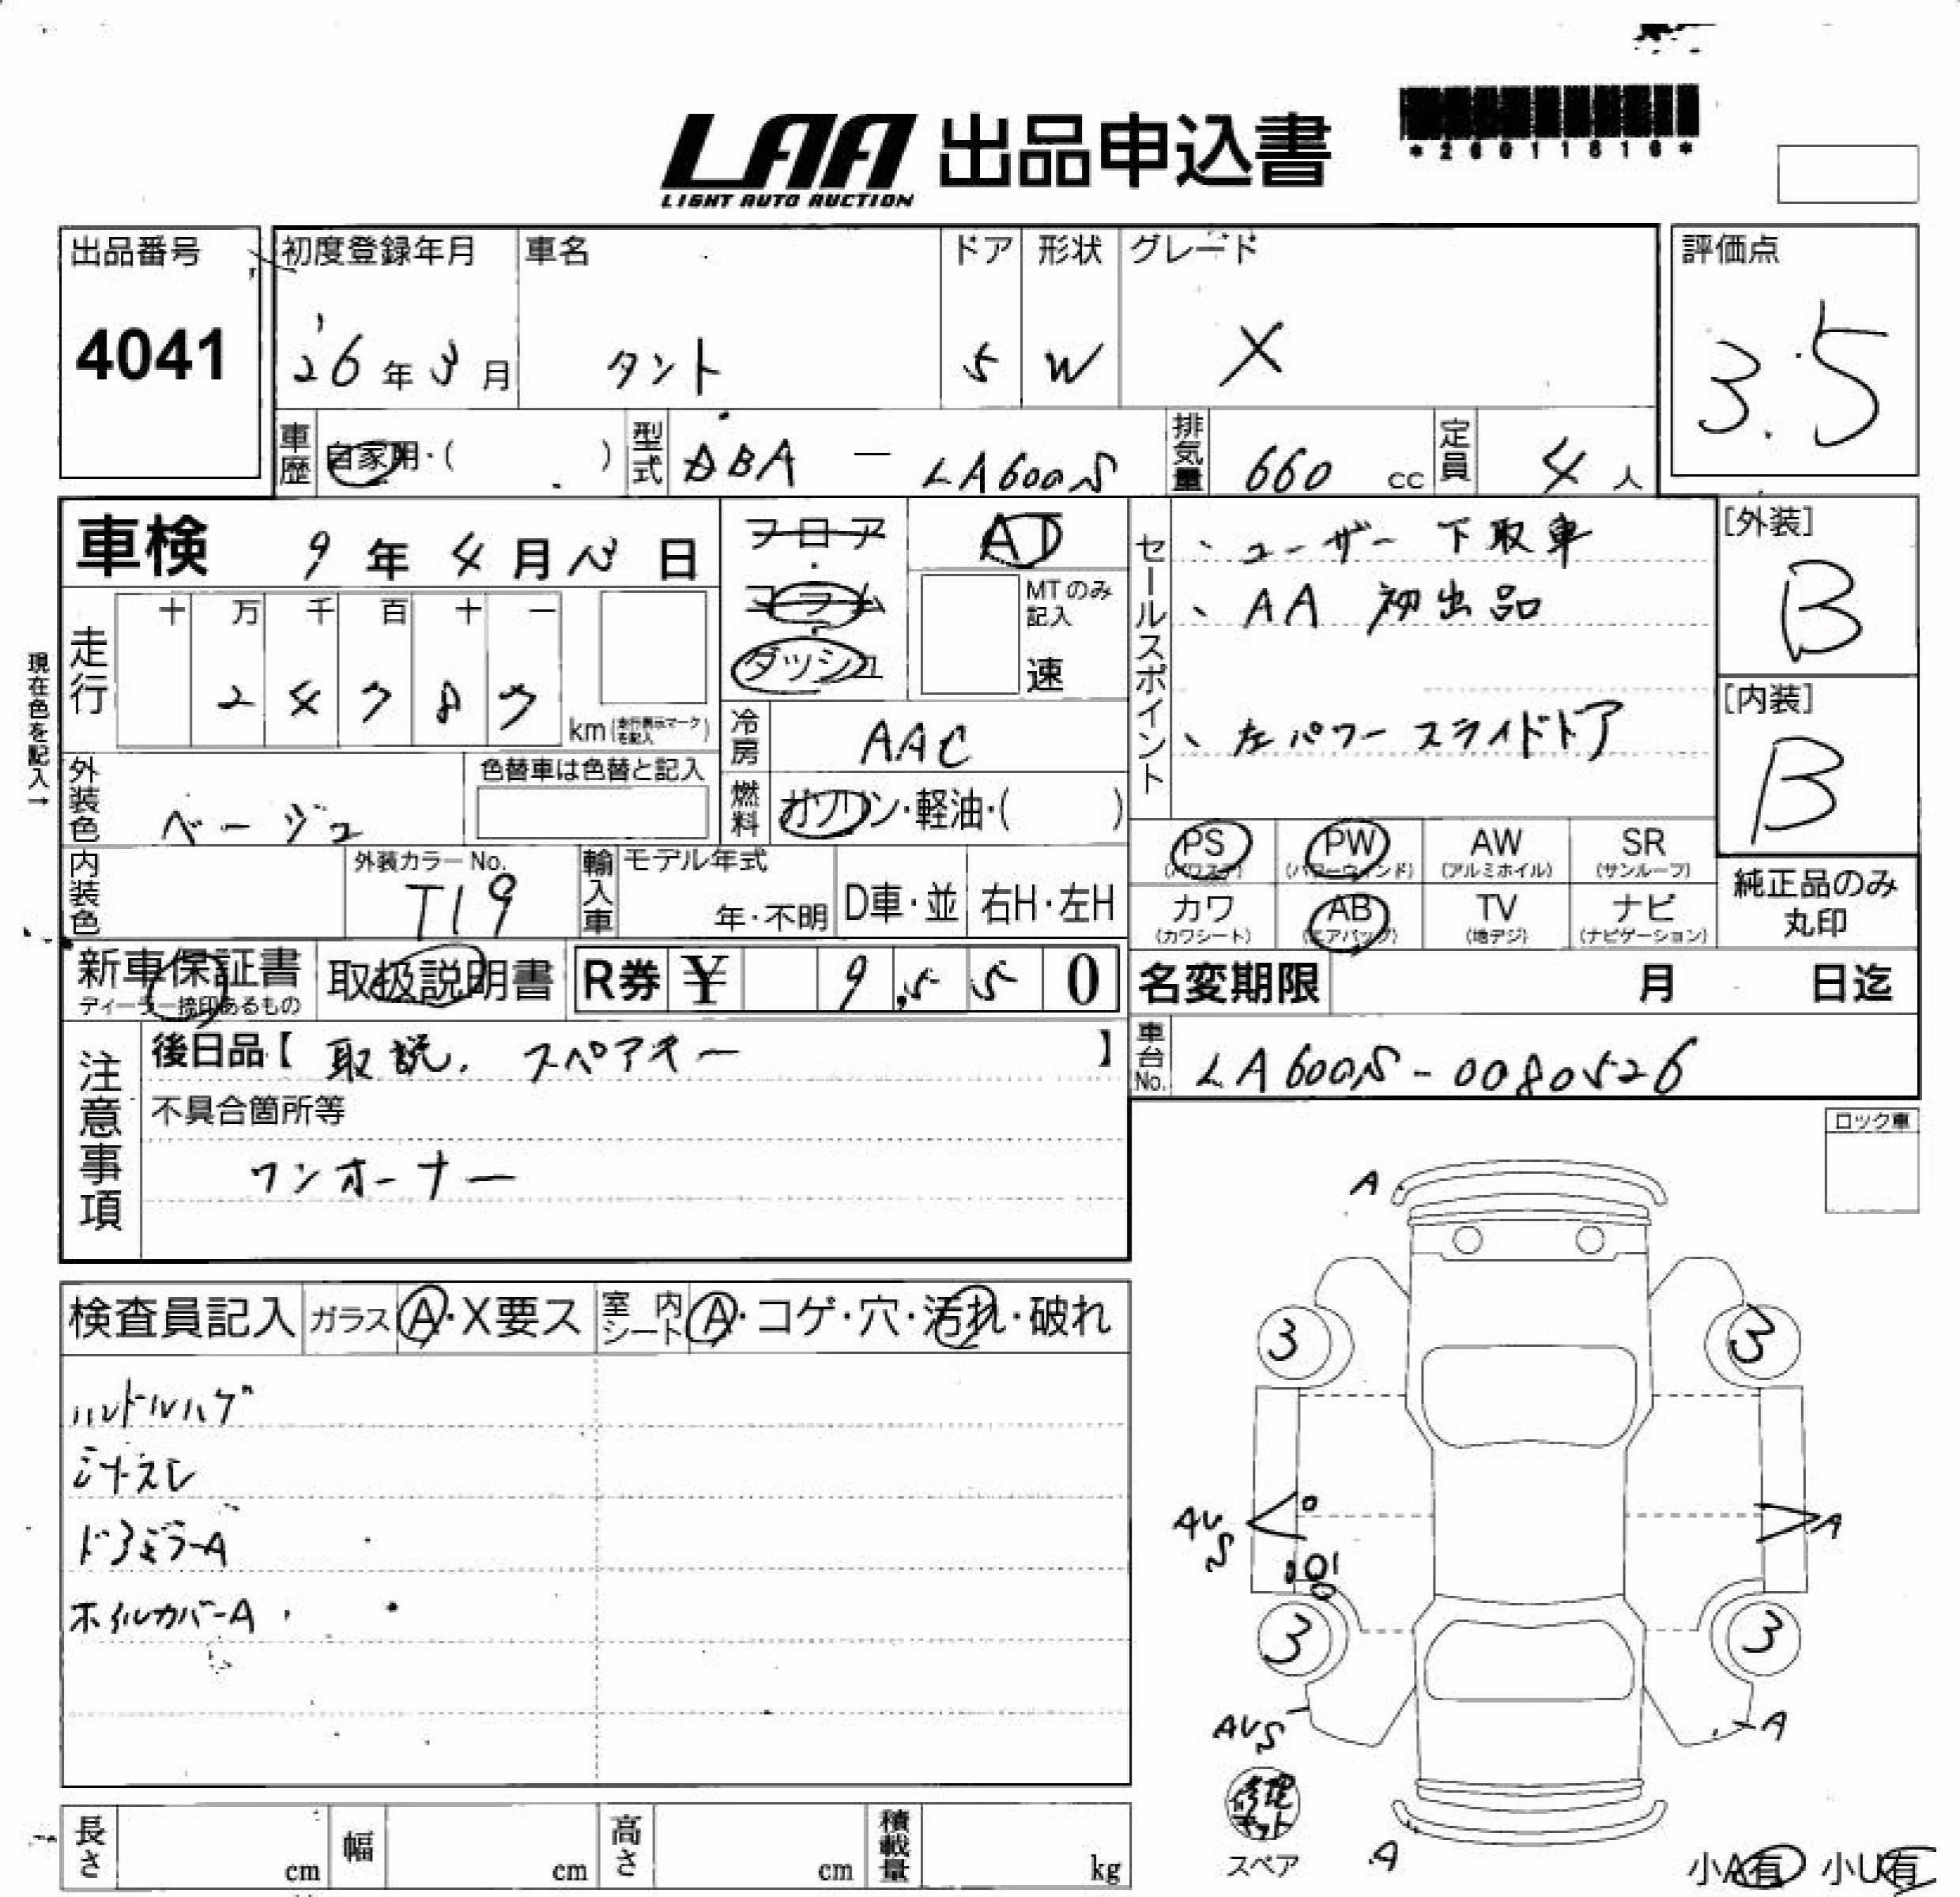 LAA 出品申込書
LIGHT AUTO AUCTION
*26011616*
出品番号
4041
初度登録年月
26年3月
車名
タント
ドア
5
形状
W
グレード
X
評価点
3.5
車歴
自家用・( )
型式
DBA - LA600S
排気量
660 cc
定員
4人
車検 9年4月 日
走行
十 万 千 百 十 一
2 4 7 8 7
km(走行表示マークを記入)
現在色を記入→
外装色
ベージュ
色替車は色替と記入
内装色
外装カラーNo.
T19
フロア
・
コラム
・
ダッシュ
AT
MTのみ記入
速
冷房
AAC
燃料
ガソリン・軽油・( )
輸入車
モデル年式
年・不明
D車・並
右H・左H
セールスポイント
、ユーザー 下取車
、AA 初出品
、左パワースライドドア
[外装]
B
[内装]
B
PS
(パワステ)
PW
(パワーウインド)
AW
(アルミホイル)
SR
(サンルーフ)
カワ
(カワシート)
AB
(エアバッグ)
TV
(地デジ)
ナビ
(ナビゲーション)
純正品のみ
丸印
新車保証書
ディーラー捺印あるもの
取扱説明書
R券 ¥ 9,550
名変期限 月 日迄
車台No.
LA600S-0080526
注意事項
後日品【 取説. スペアキー 】
不具合箇所等
ワンオーナー
ロック車
検査員記入
ガラス
A・X要ス
室内シート
A・コゲ・穴・汚れ・破れ
ハンドルハゲ
シートスレ
ドアミラーA
ホイルカバーA
A
3 3
AVS
A
3 3
AVS
A
修理キット
スペア
A
小A有 小U有
長さ
cm
幅
cm
高さ
cm
積載量
kg